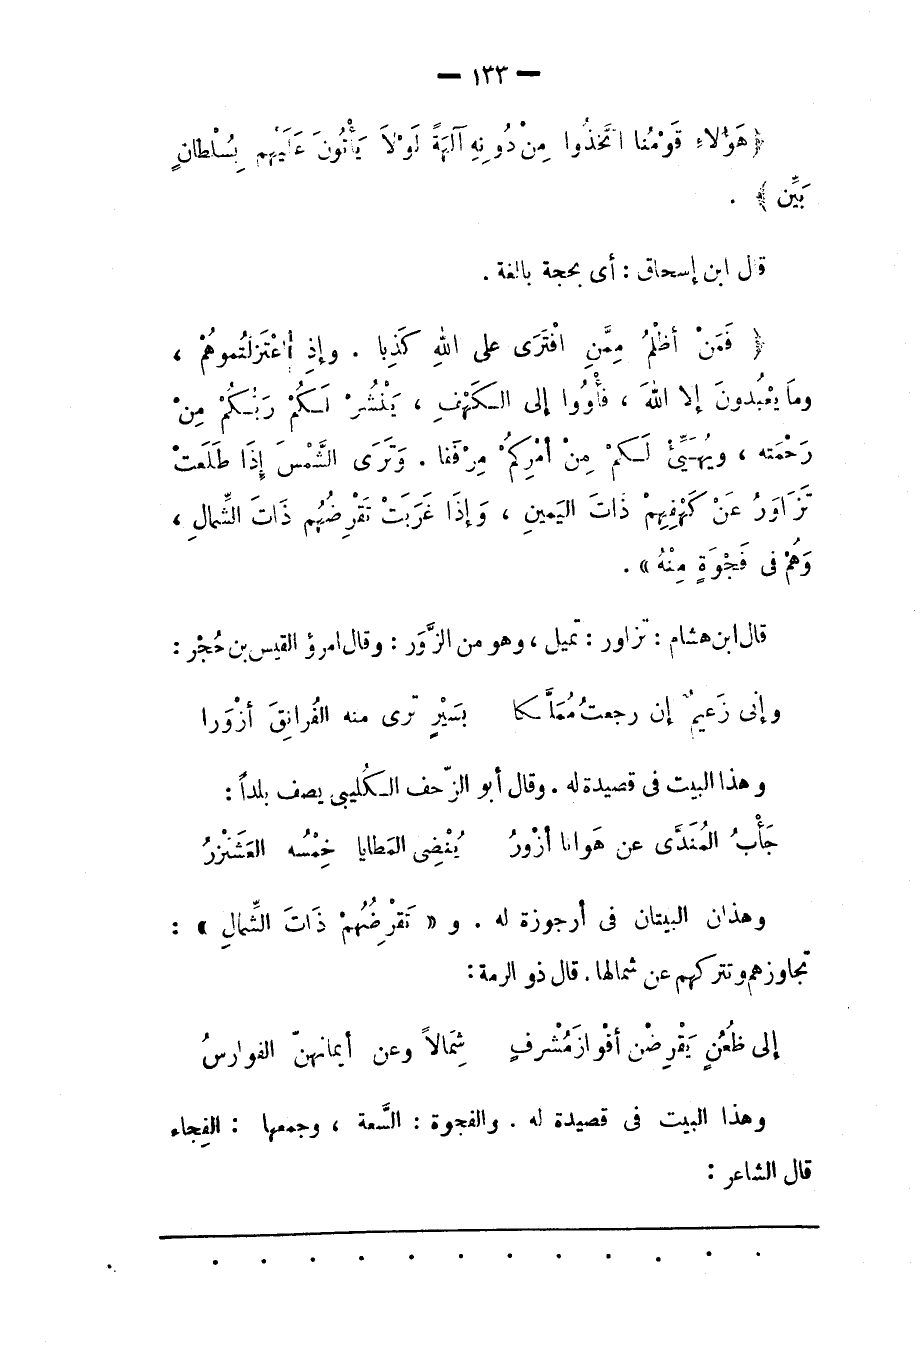 — ١٣٣ —
﴿ هَؤُلاءِ قَوْمُنا اتَّخَذُوا مِنْ دُونِهِ آلهَةً لَوْلاَ يَأْتُونَ عَلَيْهِم بِسُلْطانٍ
بَيِّن ﴾ .
قال ابن إسحاق : أى بحجة بالغة .
﴿ فَمَنْ أظْلَمُ مِمَّنِ افْتَرَى على اللهِ كَذِبا . وإذِ اعْتَزَلْتُموهُمْ ،
وما يَعْبُدونَ إلا اللهَ ، فَأْوُوا إلى الكَهْفِ ، يَنْشُرْ لَكُمْ رَبُّكُمْ مِنْ
رَحْمَته ، ويُهَيِّئْ لَكمْ مِنْ أمْرِكُمْ مِرْفَقا . وَتَرَى الشَّمْسَ إِذَا طَلَعَتْ
تَزَاوَرُ عَنْ كَهْفِهِمْ ذَاتَ اليَمينِ ، وَإذَا غَرَبَتْ تَقْرِضُهُم ذَاتَ الشِّمالِ ،
وَهُمْ فى فَجْوَةٍ مِنْهُ » .
قال ابن هشام : تزاور : تميل ، وهو من الزَّوَر : وقال امرؤ القيس بن حُجْر :
وإنى زَعيمٌ إن رجعتُ مُمَلَّكا بسَيْرٍ ترى منه الفُرانِقَ أزْوَرا
وهذا البيت فى قصيدة له . وقال أبو الزّحف الكُليبى يصف بلداً :
جَأْبُ المُنَدَّى عن هَوانا أزْورُ يُنْضِى المَطايا خِمْسُه العَشَنْزرُ
وهذان البيتان فى أرجوزة له . و « تَقْرِضُهُمْ ذَاتَ الشِّمالِ » :
تجاوزهم وتتركهم عن شمالها . قال ذو الرمة :
إلى ظُعُنٍ يَقْرِضْن أقْوازَ مُشْرفٍ شِمَالاً وعن أيمانهنّ الفوارسُ
وهذا البيت فى قصيدة له . والفجوة : السَّعة ، وجمعها : الفِجاء
قال الشاعر :
. . . . . . . . . . . .